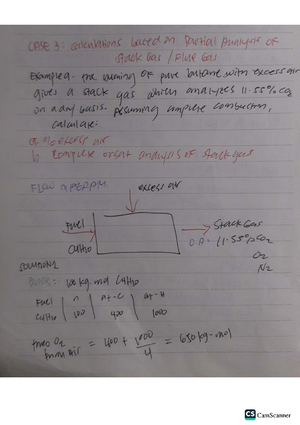 CASE 3: Calculations based on Partial Analysis of
Stack Gas / Flue Gas
Example 1. The burning of pure butane with excess air
gives a stack gas which analyzes 11.55% CO2
on a dry basis. Assuming complete combustion,
calculate:
a) % excess air
b) Complete orsat analysis of stack gas
FLOW
excess air
Fuel
C4H10
Stack Gas
11.55% CO2
O2
N2
SOLUTION:
Basis: 100 kg-mol C4H10
Fuel | n | at-C | at-H
C4H10 | 100 | 400 | 1000
theo O2
from air = 400 + 1000/4 = 650 kg-mol
CS CamScanner